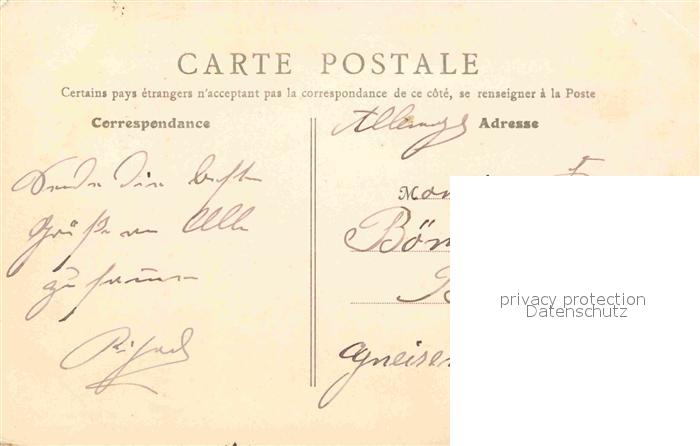 CARTE POSTALE
Certains pays étrangers n'acceptant pas la correspondance de ce côté, se renseigner à la Poste
Correspondance
Adresse
Sende die besten
Grüße an Alle
zusammen
Richard
Mon
Bön
Gneisen
privacy protection
Datenschutz